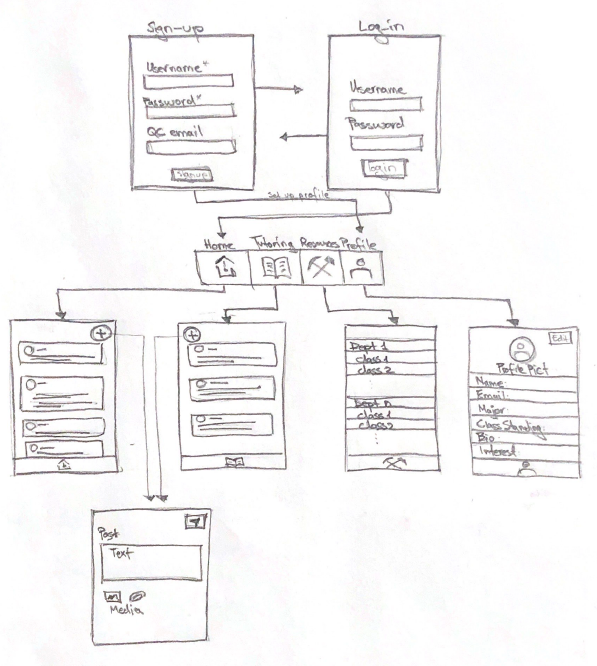 Sign-up
Log-in
Username*
Password*
QC email
signup
Username
Password
login
set up profile
Home Tutoring Resources Profile
Dept 1
class 1
class 2
Dept n
class 1
class 2
Edit
Profile Pict
Name:
Email:
Major
Class Standing:
Bio
Interest
Post
Text
Media